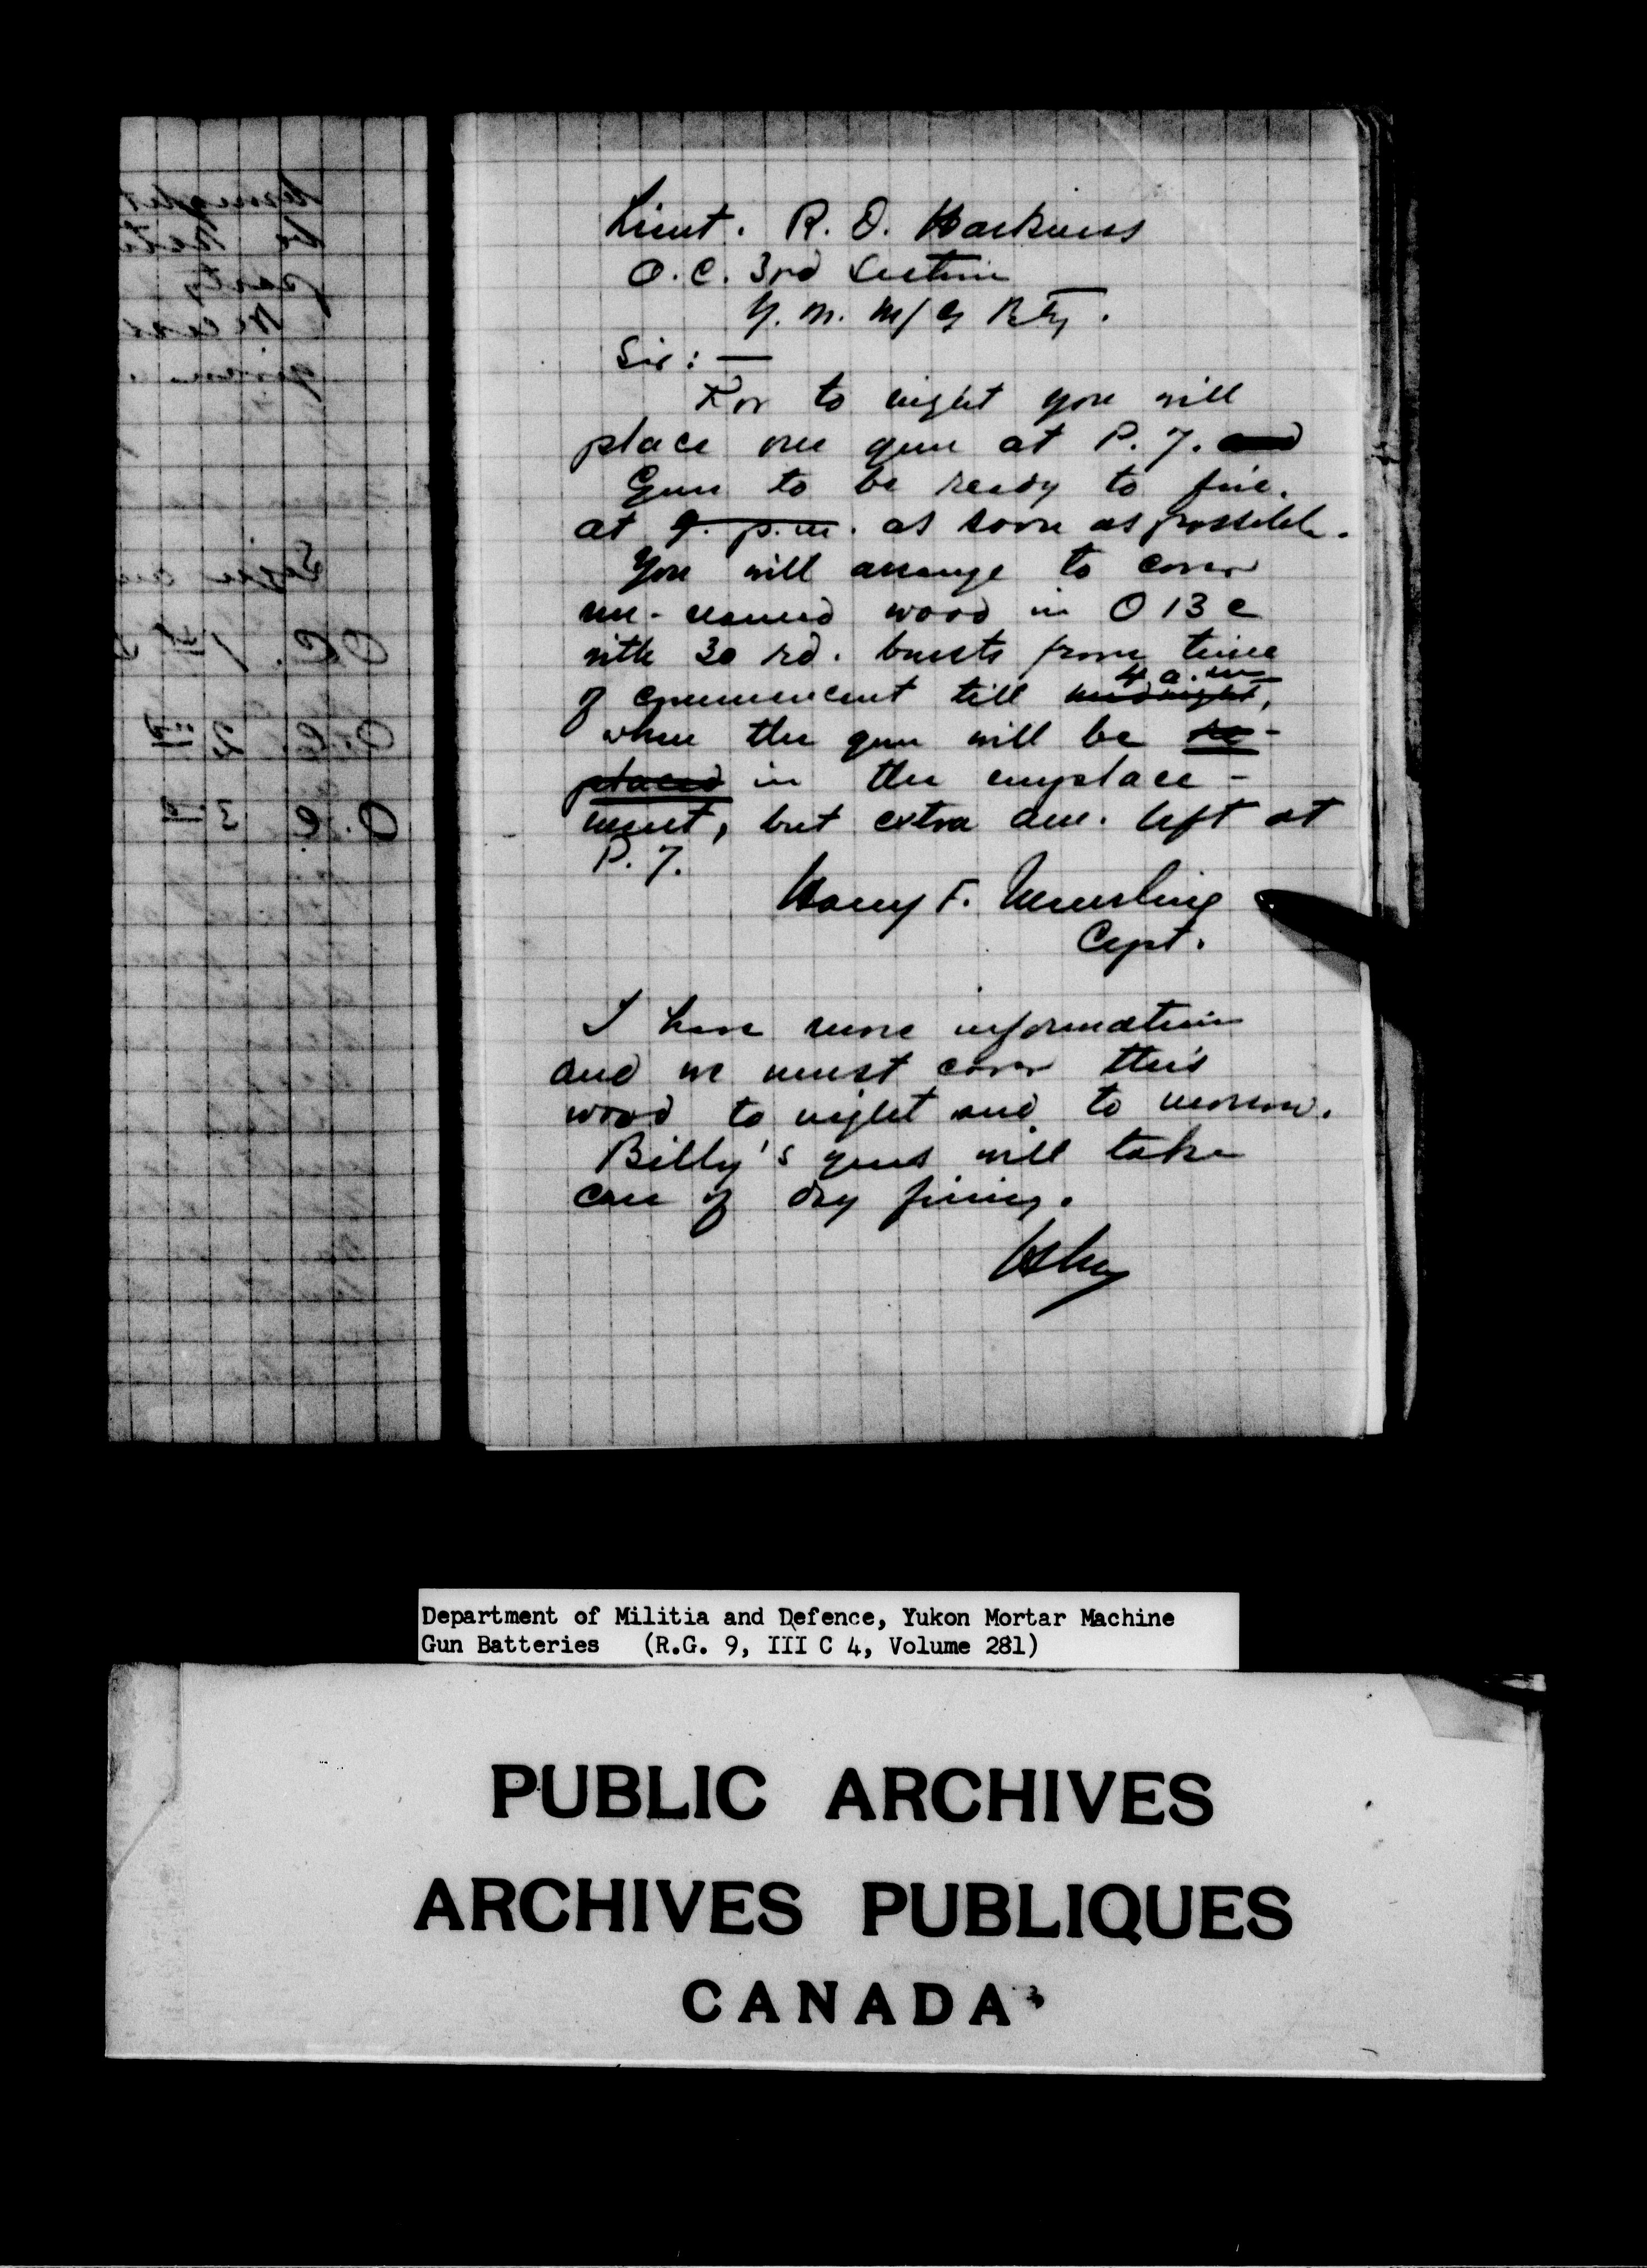 Lieut. R. O. Harkness
O.C. 3rd Section
Y. M. M/G Bty.
Sir: —
For to night you will
place one gun at P. 7. and
Gun to be ready to fire.
at 9. p.m. as soon as possible.
You will arrange to cover
un-named wood in O 13 c
with 30 rd. bursts from time
4 a.m.
of commencent till midnight,
when the gun will be re-
placed in the emplace-
ment, but extra am. left at
P. 7.
Harry F. Meurling
Capt.
I have more information
and we must cover this
wood to night and to morrow.
Billy's guns will take
care of day firing.
Department of Militia and Defence, Yukon Mortar Machine
Gun Batteries (R.G. 9, III C 4, Volume 281)
PUBLIC ARCHIVES
ARCHIVES PUBLIQUES
CANADA